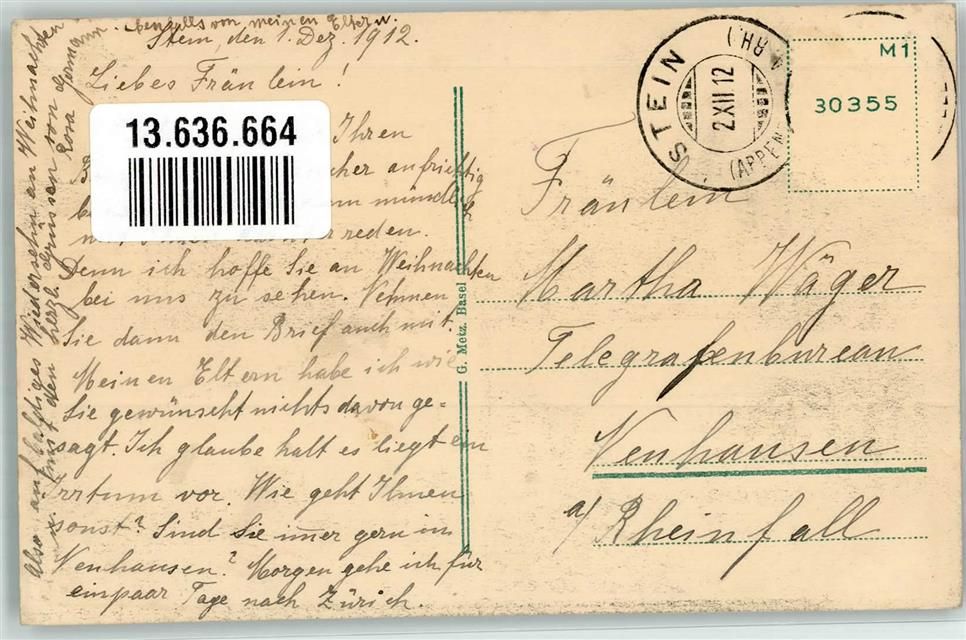 ebenfalls von meinen Eltern.
Stein, den 1. Dez. 1912.
Liebes Fräulein!
13.636.664
Ihren
aufrichtig
mündlich
reden.
Denn ich hoffe Sie an Weihnachten
bei uns zu sehen. Nehmen
Sie dann den Brief auch mit.
Meinen Eltern habe ich wie
Sie gewünscht nichts davon ge-
sagt. Ich glaube halt es liegt ein
Irrtum vor. Wie geht Ihnen
sonst? Sind Sie im̄er gern in
Neuhausen? Morgen gehe ich für
ein paar Tage nach Zürich.
Also auf baldiges Wiedersehn an Weihnachten
u. sonst den herzl. Grüssen von
Rosa Germann.
G. Metz, Basel
STEIN
(APPENZ. A. RH.)
2. XII. 12
M1
30355
Fräulein
Martha Wäger
Telegrafenbureau
Neuhausen
a/ Rheinfall